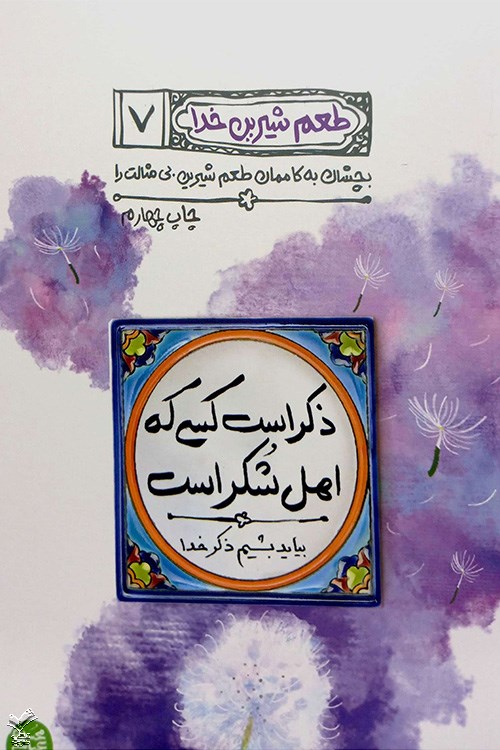 طعم شیرین خدا
۷
بچشان به کاممان طعم شیرین بی مثالت را
چاپ چهارم
ذکر است کسی که
اهل شُکر است
بیاید بشیم ذکر خدا